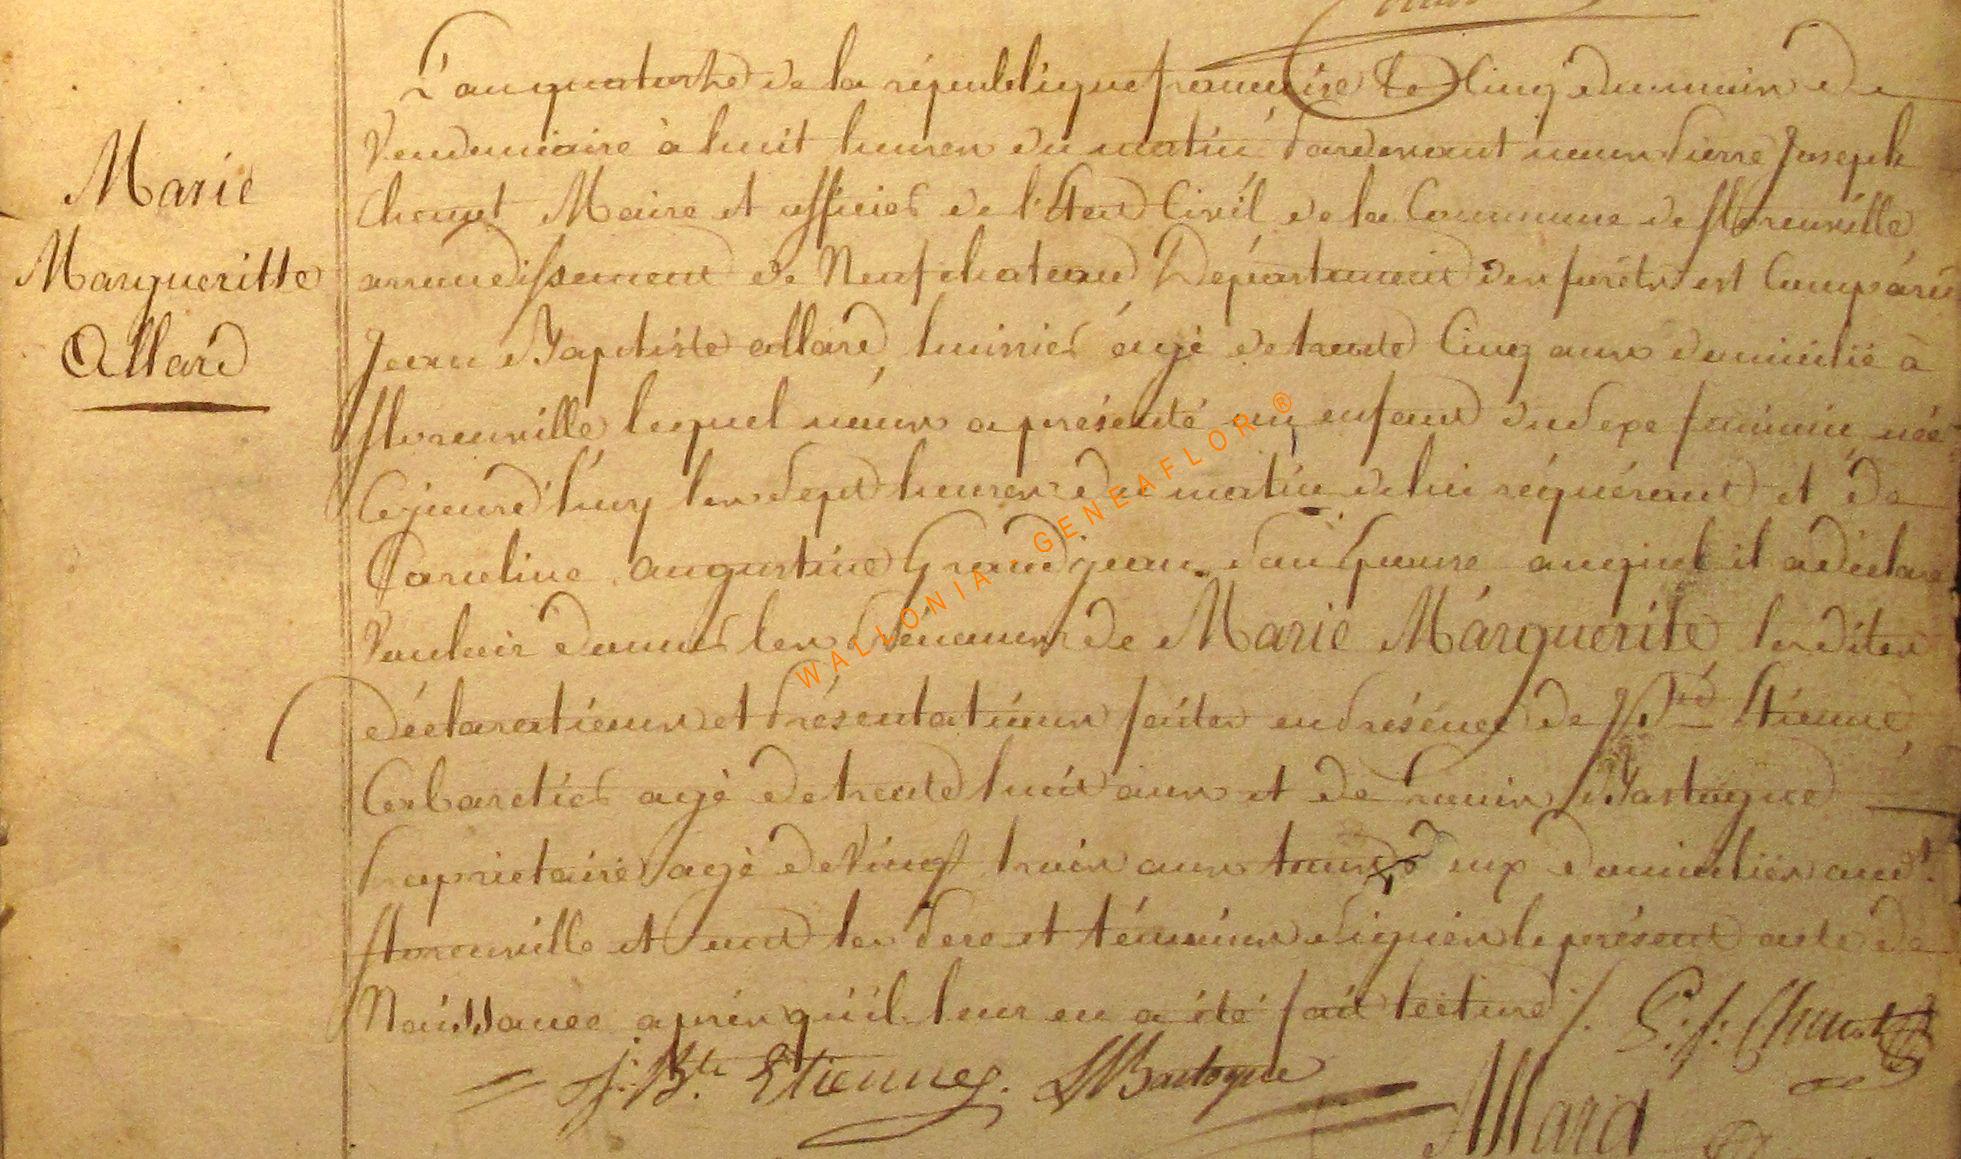 Marie
Margueritte
Allard
L'an quatorze de la république françoise le cinq du mois de
Vendemiaire à huit heures du matin pardevant nous Pierre Joseph
Chouet Maire et officier de l'Etat Civil de la Commune de florenville
arrondissement de Neufchateau Département des forêts est Comparu
Jean Baptiste allard huissier agé de trente Cinq ans domicilié à
florenville lequel nous a présenté un enfant du sexe feminin née
Cejourd'huy les sept heures du matin de lui réquérant et de
Caroline augustine Grandjean son Epouse auquel il a déclaré
Vouloir donner les prénoms de Marie Marguerite lesdites
déclarations et présentations faites en présence de J Bte Etienne
Cabaretier agé de trente huit ans et de Louis Bastogne
propriétaire agé de Vingt trois ans tous deux domiciliés aud.t
florenville et ont les pere et témoins signés le présent acte de
Naissance après qu'il leur en a été fait lecture /. P: J: Chouet
J: Bte Etienne. L Bastogne
Allard
WALLONIA - GENEAFLOR ®